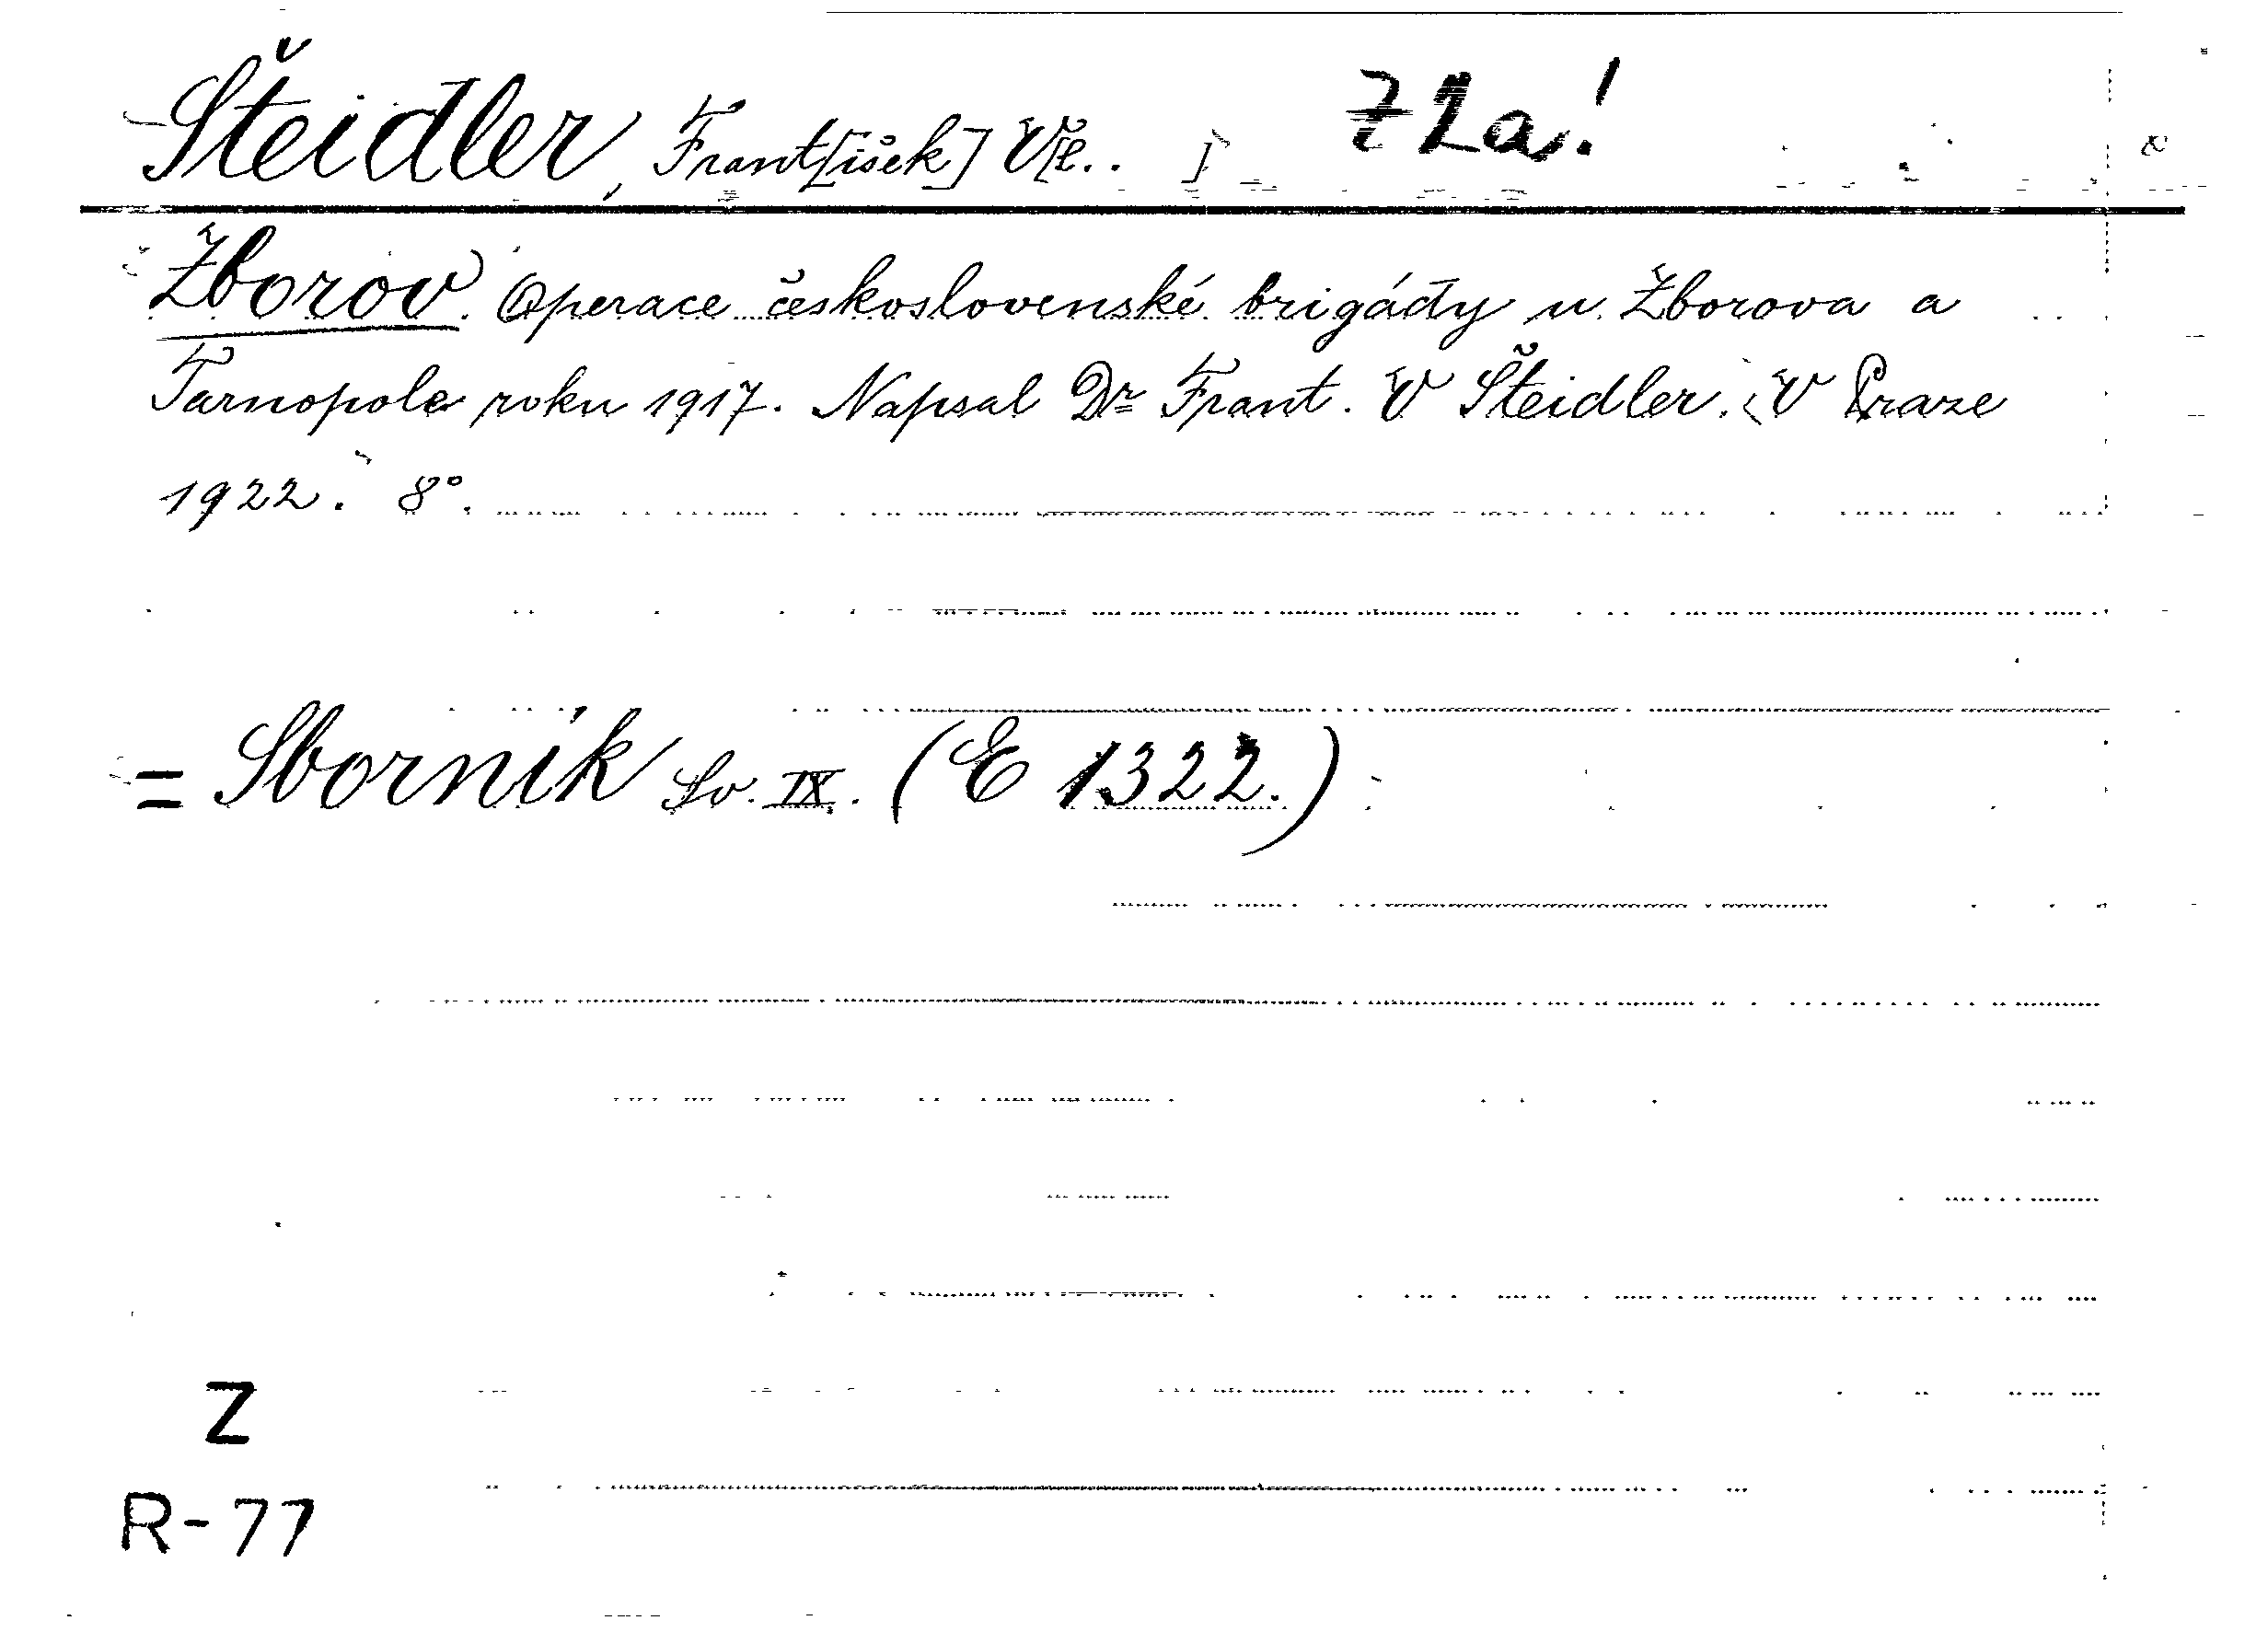 Šteidler, Frant[išek] V[.. ] Z 2a!
Zborov. Operace československé brigády u Zborova a
Tarnopole roku 1917. Napsal Dr Frant. V Šteidler. V Praze
1922. 8°.
= Sborník Sv. IX. (E 1322.)
Z
R-77